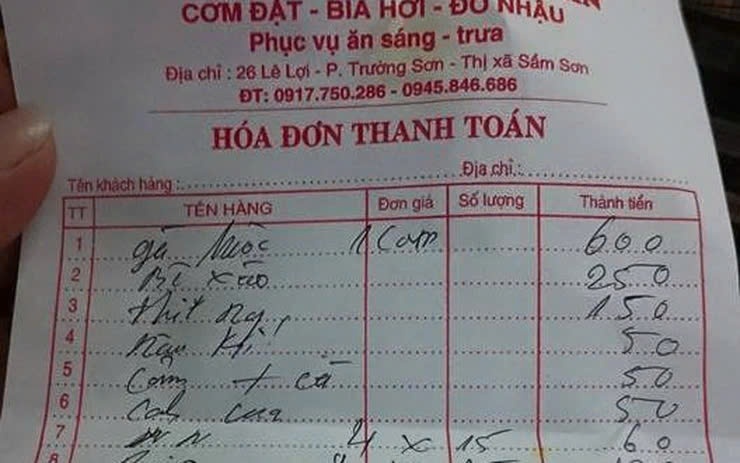 CƠM ĐẶT - BIA HƠI - ĐỒ NHẬU
Phục vụ ăn sáng - trưa
Địa chỉ : 26 Lê Lợi - P. Trường Sơn - Thị xã Sầm Sơn
ĐT: 0917.750.286 - 0945.846.686
HÓA ĐƠN THANH TOÁN
Tên khách hàng : Địa chỉ :
TT TÊN HÀNG Đơn giá Số lượng Thành tiền
1 gà luộc 1 Con 600
2 Bò xào 250
3 thịt 150
4 50
5 Cơm + cà 50
6 Canh cua 50
7 4 x 15 60
8